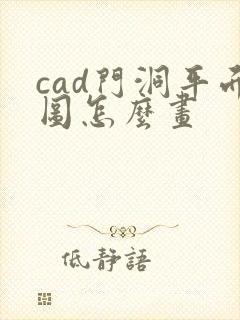 cad門洞平面
圖怎麼畫
低靜語